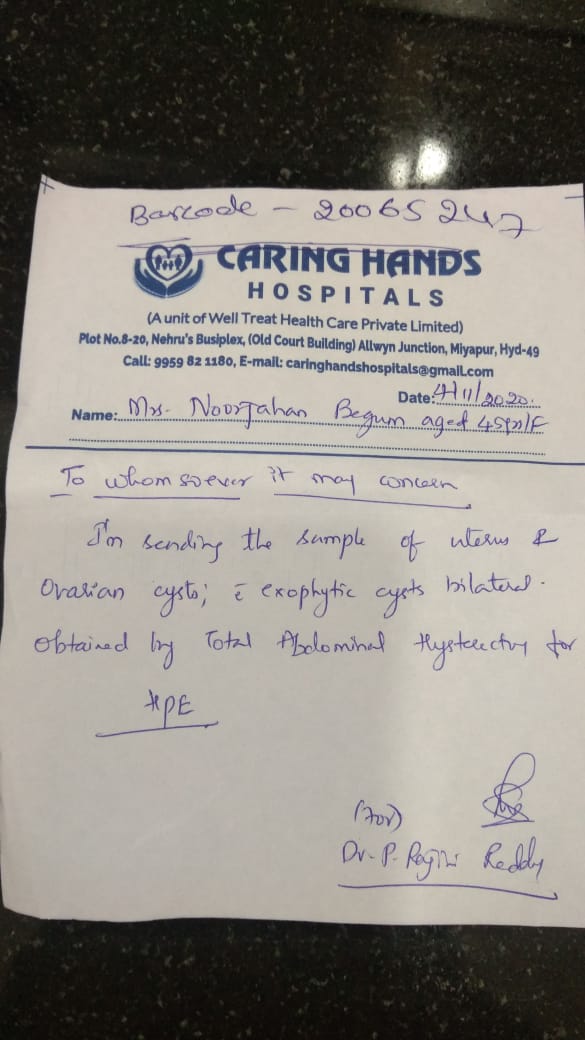 Barcode - 20065247
CARING HANDS
HOSPITALS
(A unit of Well Treat Health Care Private Limited)
Plot No.8-20, Nehru's Busiplex, (Old Court Building) Allwyn Junction, Miyapur, Hyd-49
Call: 9959 82 1180, E-mail: caringhandshospitals@gmail.com
Date: 4/11/2020.
Name: Mrs. Noorjahan Begum aged 45yrs/F
To whom so ever it may concern
I'm sending the sample of uterus &
Ovarian cysts; c̄ exophytic cysts bilateral.
Obtained by Total Abdominal Hysterectmy for
HPE
(For)
Dr. P. Ragini Reddy